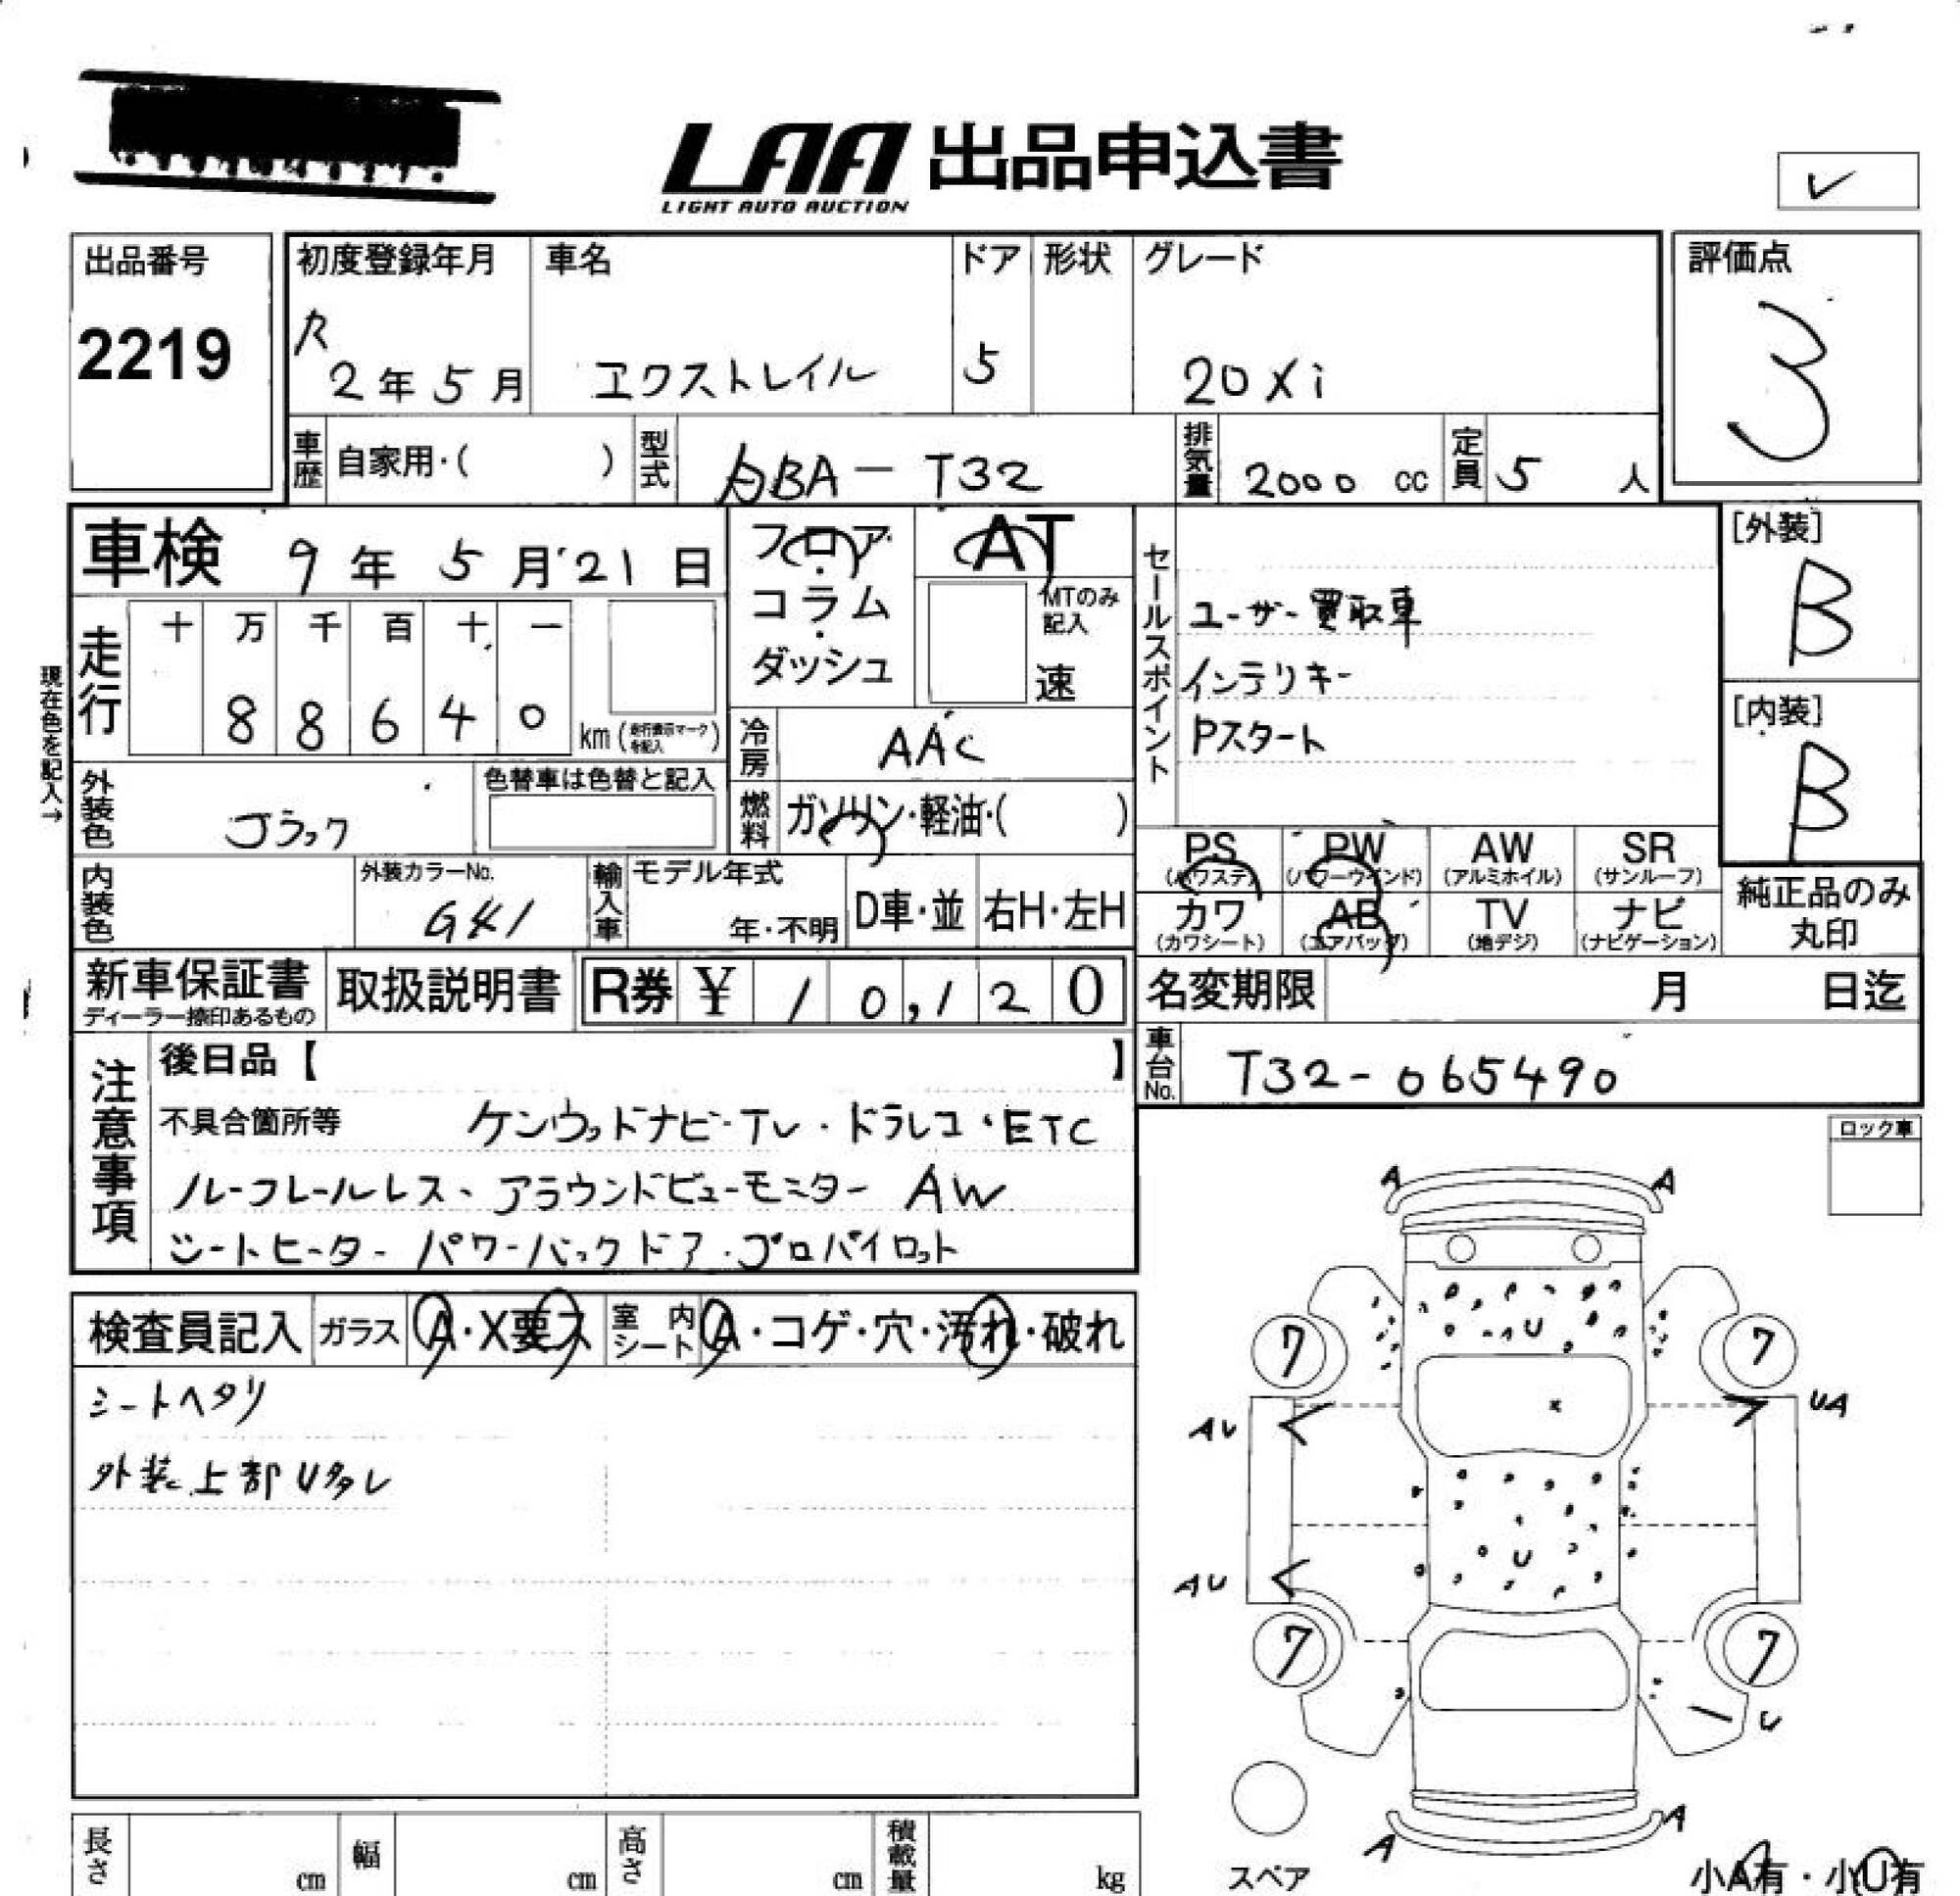 LAA 出品申込書
LIGHT AUTO AUCTION
✓
出品番号
2219
初度登録年月
R
2年5月
車名
エクストレイル
ドア
5
形状
グレード
20Xi
評価点
3
車歴
自家用・( )
型式
DBA-T32
排気量
2000 cc
定員
5 人
車検 9年5月21日
フロア・コラム・ダッシュ
AT
MTのみ記入
速
セールスポイント
ユーザー買取車
インテリキー
Pスタート
[外装]
B
[内装]
B
現在色を記入→
走行
十 万 千 百 十 一
8 8 6 4 0 km (走行表示マークを記入)
冷房
AAC
外装色
ブラック
色替車は色替と記入
燃料
ガソリン・軽油・( )
PS (パワステ)
PW (パワーウインド)
AW (アルミホイル)
SR (サンルーフ)
カワ (カワシート)
AB (エアバッグ)
TV (地デジ)
ナビ (ナビゲーション)
純正品のみ丸印
内装色
外装カラーNo.
G41
輸入車
モデル年式
年・不明
D車・並
右H・左H
新車保証書
ディーラー捺印あるもの
取扱説明書
R券 ¥ 10,120
名変期限 月 日迄
車台No.
T32-065490
注意事項
後日品【 】
不具合箇所等 ケンウッドナビ・TV・ドラレコ・ETC
ルーフレールレス、アラウンドビューモニター AW
シートヒーター パワーバックドア・プロパイロット
ロック車
検査員記入
ガラス A・X要ス
室内シート A・コゲ・穴・汚れ・破れ
シートヘタリ
外装上部U多数
A A
U
7 7
AU UA
U
AU
7 7
U
A A
スペア
小A有・小U有
長さ cm
幅 cm
高さ cm
積載量 kg